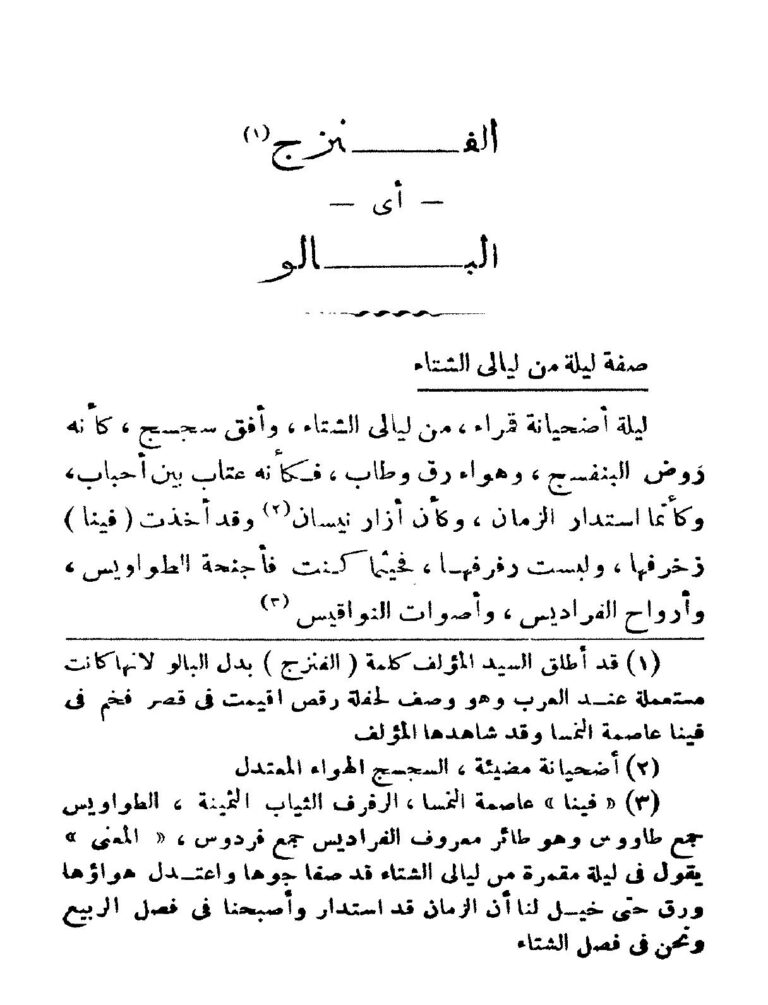 الفنزج (١)
— أى —
البالو
صفة ليلة من ليالى الشتاء
ليلة أضحيانة قمراء ، من ليالى الشتاء ، وأفق سجسج ، كأنه
رَوض البنفسج ، وهواء رق وطاب ، فكأنه عتاب بين أحباب،
وكأنما استدار الزمان ، وكأن أزار نيسان (٢) وقد أخذت ( فينا )
زخرفها ، ولبست رفرفها ، فحيثما كنت فأجنحة الطواويس ،
وأرواح الفراديس ، وأصوات النواقيس (٣)
(١) قد أطلق السيد المؤلف كلمة ( الفنزج ) بدل البالو لانها كانت
مستعملة عند العرب وهو وصف لحفلة رقص اقيمت فى قصر فخم فى
فينا عاصمة النمسا وقد شاهدها المؤلف
(٢) أضحيانة مضيئة ، السجسج الهواء المعتدل
(٣) « فينا » عاصمة النمسا ، الرفرف الثياب الثمينة ، الطواويس
جمع طاووس وهو طائر معروف الفراديس جمع فردوس ، « المعنى »
يقول فى ليلة مقمرة من ليالى الشتاء قد صفا جوها واعتدل هواؤها
ورق حتى خيل لنا أن الزمان قد استدار وأصبحنا فى فصل الربيع
ونحن فى فصل الشتاء